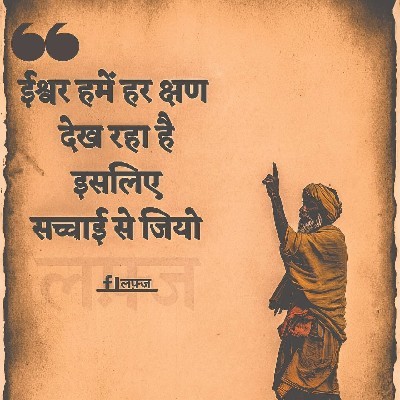 ईश्वर हमें हर क्षण
देख रहा है
इसलिए
सच्चाई से जियो
लफ़्ज
f|लफ्ज